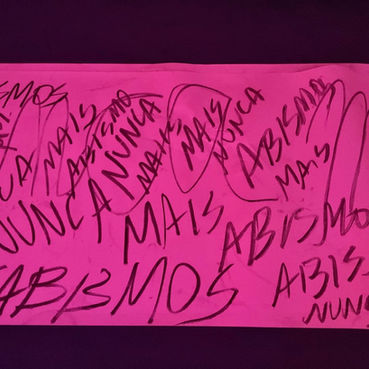 SMOS
CA MAIS ABISMO NUNCA MAIS MAIS NUNCA ABISMOS MAIS
NUNCA MAIS ABISMO
ABISMOS ABIS
NUNC